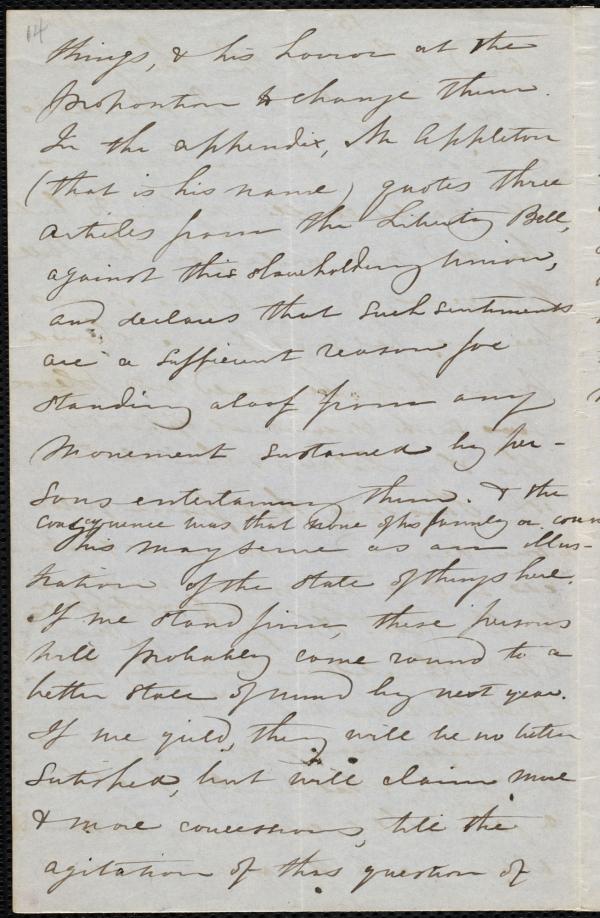 14
things, & his horror at the
proposition to change them.
In the appendix, Mr Appleton
(that is his name) quotes three
articles from the Liberty Bell,
against this slaveholding Union,
and declares that such sentiments
are a sufficient reason for
standing aloof from any
Movement sustained by per-
sons entertaining them. & the
consequence was that none of his family or conn
This may serve as an illus-
tration of the state of things here.
If we stand firm, these persons
will probably come round to a
better state of mind by next year.
If we yield, they will be no better
Satisfied, but will claim more
& more concessions, till the
agitation of this question of